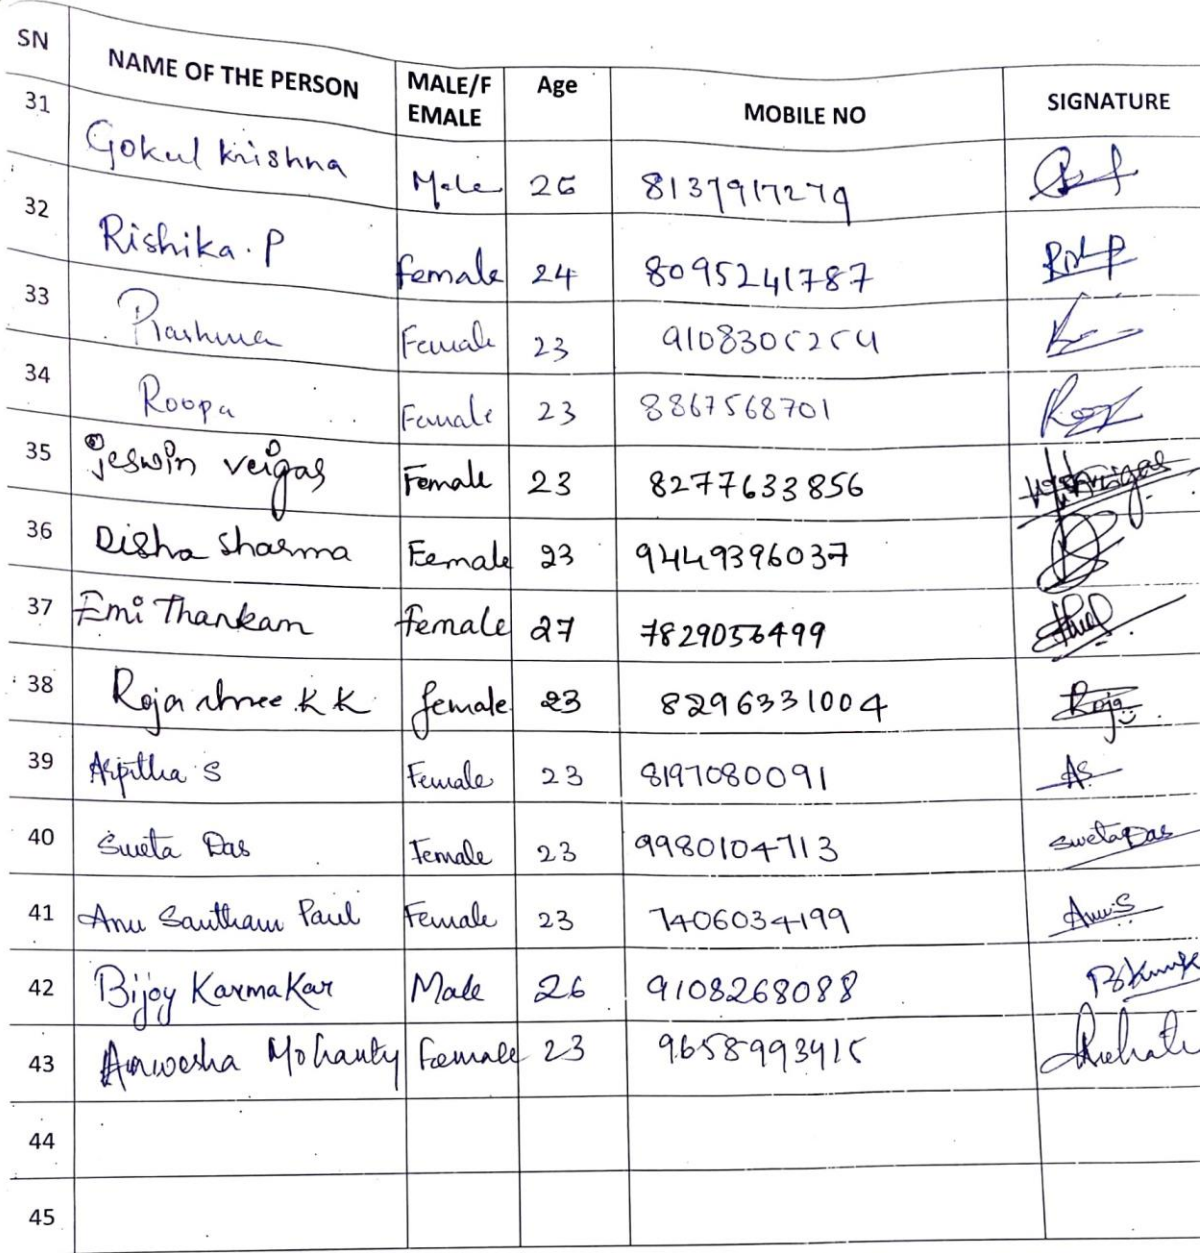 SN NAME OF THE PERSON MALE/F EMALE Age MOBILE NO SIGNATURE
31 Gokul Krishna Male 26 8137917279
32 Rishika. P Female 24 8095241787 Rish P
33 Female 23 9108305254
34 Roopa Female 23 8867568701
35 jeswin veigas Female 23 8277633856
36 Disha Sharma Female 23 9449396037
37 Emi Thankam Female 27 7829056499
38 Roja shree K K female 23 8296331004 Roja
39 Arpitha S Female 23 8197080091 AS
40 Sweta Das Female 23 9980104713 Sweta Das
41 Anu Santham Paul Female 23 7406034199 Anu S
42 Bijoy Karmakar Male 26 9108268088
43 Anwesha Mohanty Female 23 9658993415
44
45